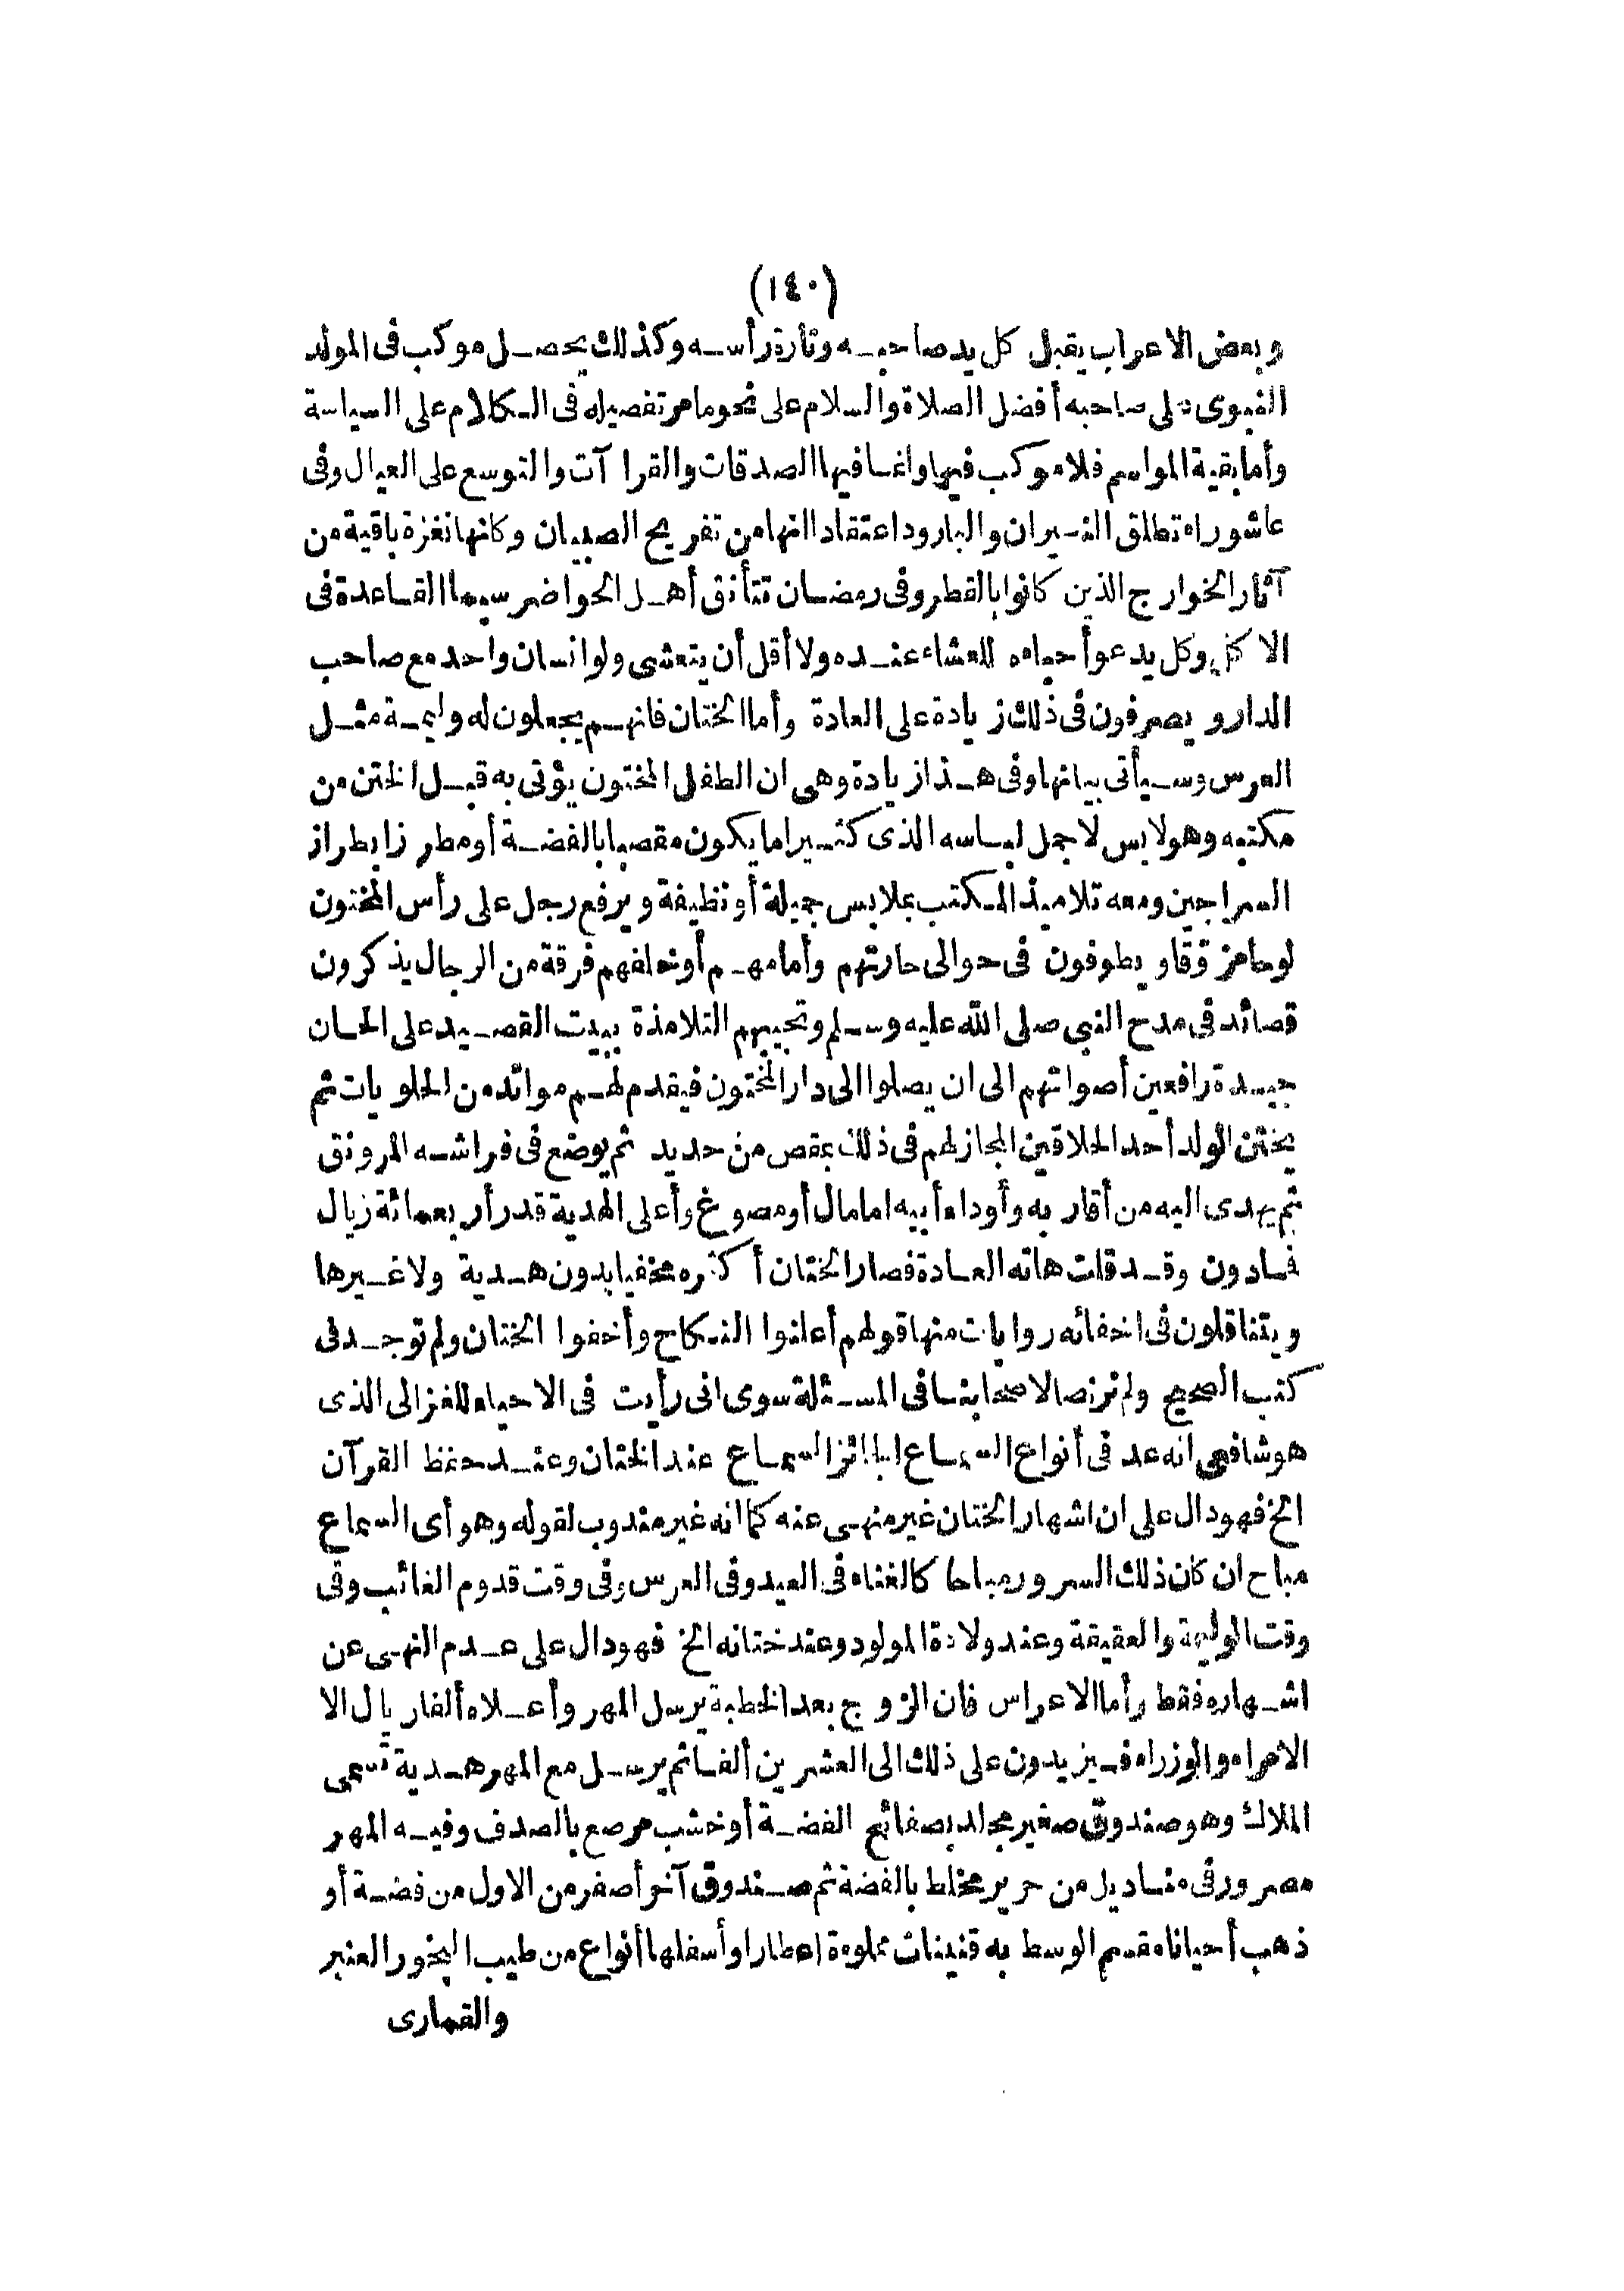 (١٤٠)
وبعض الاعراب يقبل كل يد صاحبه وتارة رأسه وكذلك يحصل موكب فى المولد
النبوى على صاحبه أفضل الصلاة والسلام على نحو ما مر تفصيله فى الكلام على السياسة
وأما بقية المواسم فلا موكب فيها وانما فيها الصدقات والقرا آت والتوسع على العيال وفى
عاشوراء تطلق النيران والبارود اعتقادا انها من تفريح الصبيان وكانها نغزة باقية من
آثار الخوارج الذين كانوا بالقطر وفى رمضان تتأنق أهل الحواضر سيما القاعدة فى
الاكل وكل يدعو أحباءه للعشاء عنده ولا أقل أن يتعشى ولو انسان واحد مع صاحب
الدار ويصرفون فى ذلك زيادة على العادة وأما الختان فانهم يجعلون له وليمة مثل
العرس وسيأتى بيانها وفى هذا زيادة وهى ان الطفل المختون يؤتى به قبل الختن من
مكتبه وهو لابس لاجمل لباسه الذى كثيرا ما يكون مقصبا بالفضة أو مطرزا بطراز
السراجين ومعه تلاميذ المكتب بملابس جميلة أو نظيفة ويرفع رجل على رأس المختون
لوحا مزوقا ويطوفون فى حوالى حارتهم وأمامهم أو خلفهم فرقة من الرجال يذكرون
قصائد فى مدح النبى صلى الله عليه وسلم وتجيبهم التلامذة ببيت القصيد على الحان
جيدة رافعين أصواتهم الى ان يصلوا الى دار المختون فيقدم لهم موائد من الحلويات ثم
يختن الولد أحد الحلاقين المجاز لهم فى ذلك بمقص من حديد ثم يوضع فى فراشه المرونق
ثم يهدى اليه من أقاربه وأوداء أبيه اما مال أو مصوغ وأعلى الهدية قدر أربعمائة ريال
فما دون وقد قلت هاته العادة فصار الختان أكثره مخفيا بدون هدية ولا غيرها
ويتناقلون فى اخفائه روايات منها قولهم أعلنوا النكاح وأخفوا الختان ولم توجد فى
كتب الصحيح ولم نر نصا لاصحابنا فى المسئلة سوى انى رأيت فى الاحياء للغزالى الذى
هو شافعى انه عد فى أنواع السماع الجائز السماع عند الختان وعند حفظ القرآن
الخ فهو دال على ان اشهار الختان غير منهى عنه كما انه غير مندوب لقوله وهو أى السماع
مباح ان كان ذلك السرور مباحا كالغناء فى العيد وفى العرس وفى وقت قدوم الغائب وفى
وقت الوليمة والعقيقة وعند ولادة المولود وعند ختانه الخ فهو دال على عدم النهى عن
اشهاره فقط وأما الاعراس فان الزوج بعد الخطبة يرسل المهر وأعلاه ألفا ريال الا
الامراء والوزراء فيزيدون على ذلك الى العشرين ألفا ثم يرسل مع المهر هدية تسمى
الملاك وهو صندوق صغير مجلد بصفائح الفضة أو خشب مرصع بالصدف وفيه المهر
مصرور فى مناديل من حرير مخلط بالفضة ثم صندوق آخر أصغر من الاول من فضة أو
ذهب أحيانا مقسم الوسط به قنينات مملوءة اعطارا وأسفلها أنواع من طيب البخور العنبر
والقمارى